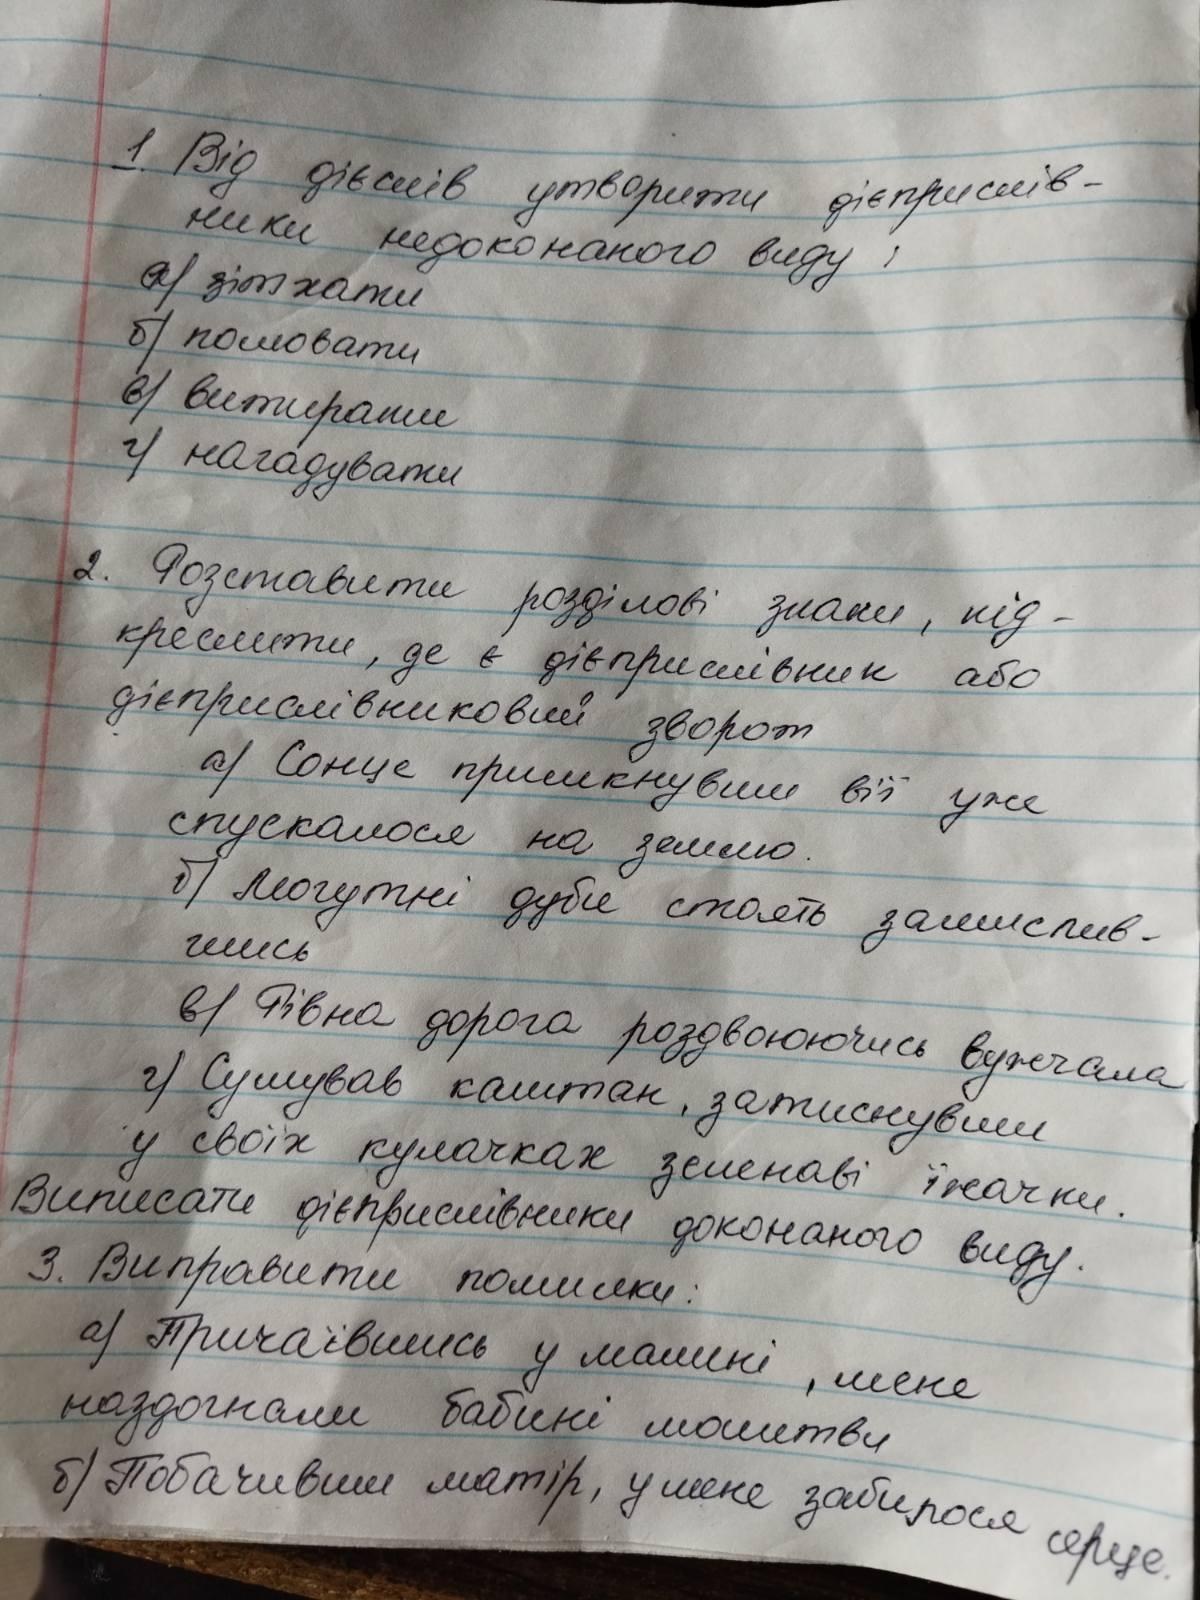 1. Від дієслів утворити дієприслів-
ники недоконаного виду:
а) зітхати
б) полювати
в) витирати
г) нагадувати
2. Розставити розділові знаки, під-
креслити, де є дієприслівник або
дієприслівниковий зворот
а) Сонце примкнувши вії уже
спускалося на землю.
б) Могутні дуби стоять замислив-
шись
в) Рівна дорога роздвоюючись вужчала
г) Сумував каштан, затиснувши
у своїх кулачках зеленаві їжачки.
Виписати дієприслівники доконаного виду.
3. Виправити помилки:
а) Причаївшись у малині, мене
наздогнали бабині молитви
б) Побачивши матір, у мене забилося серце.